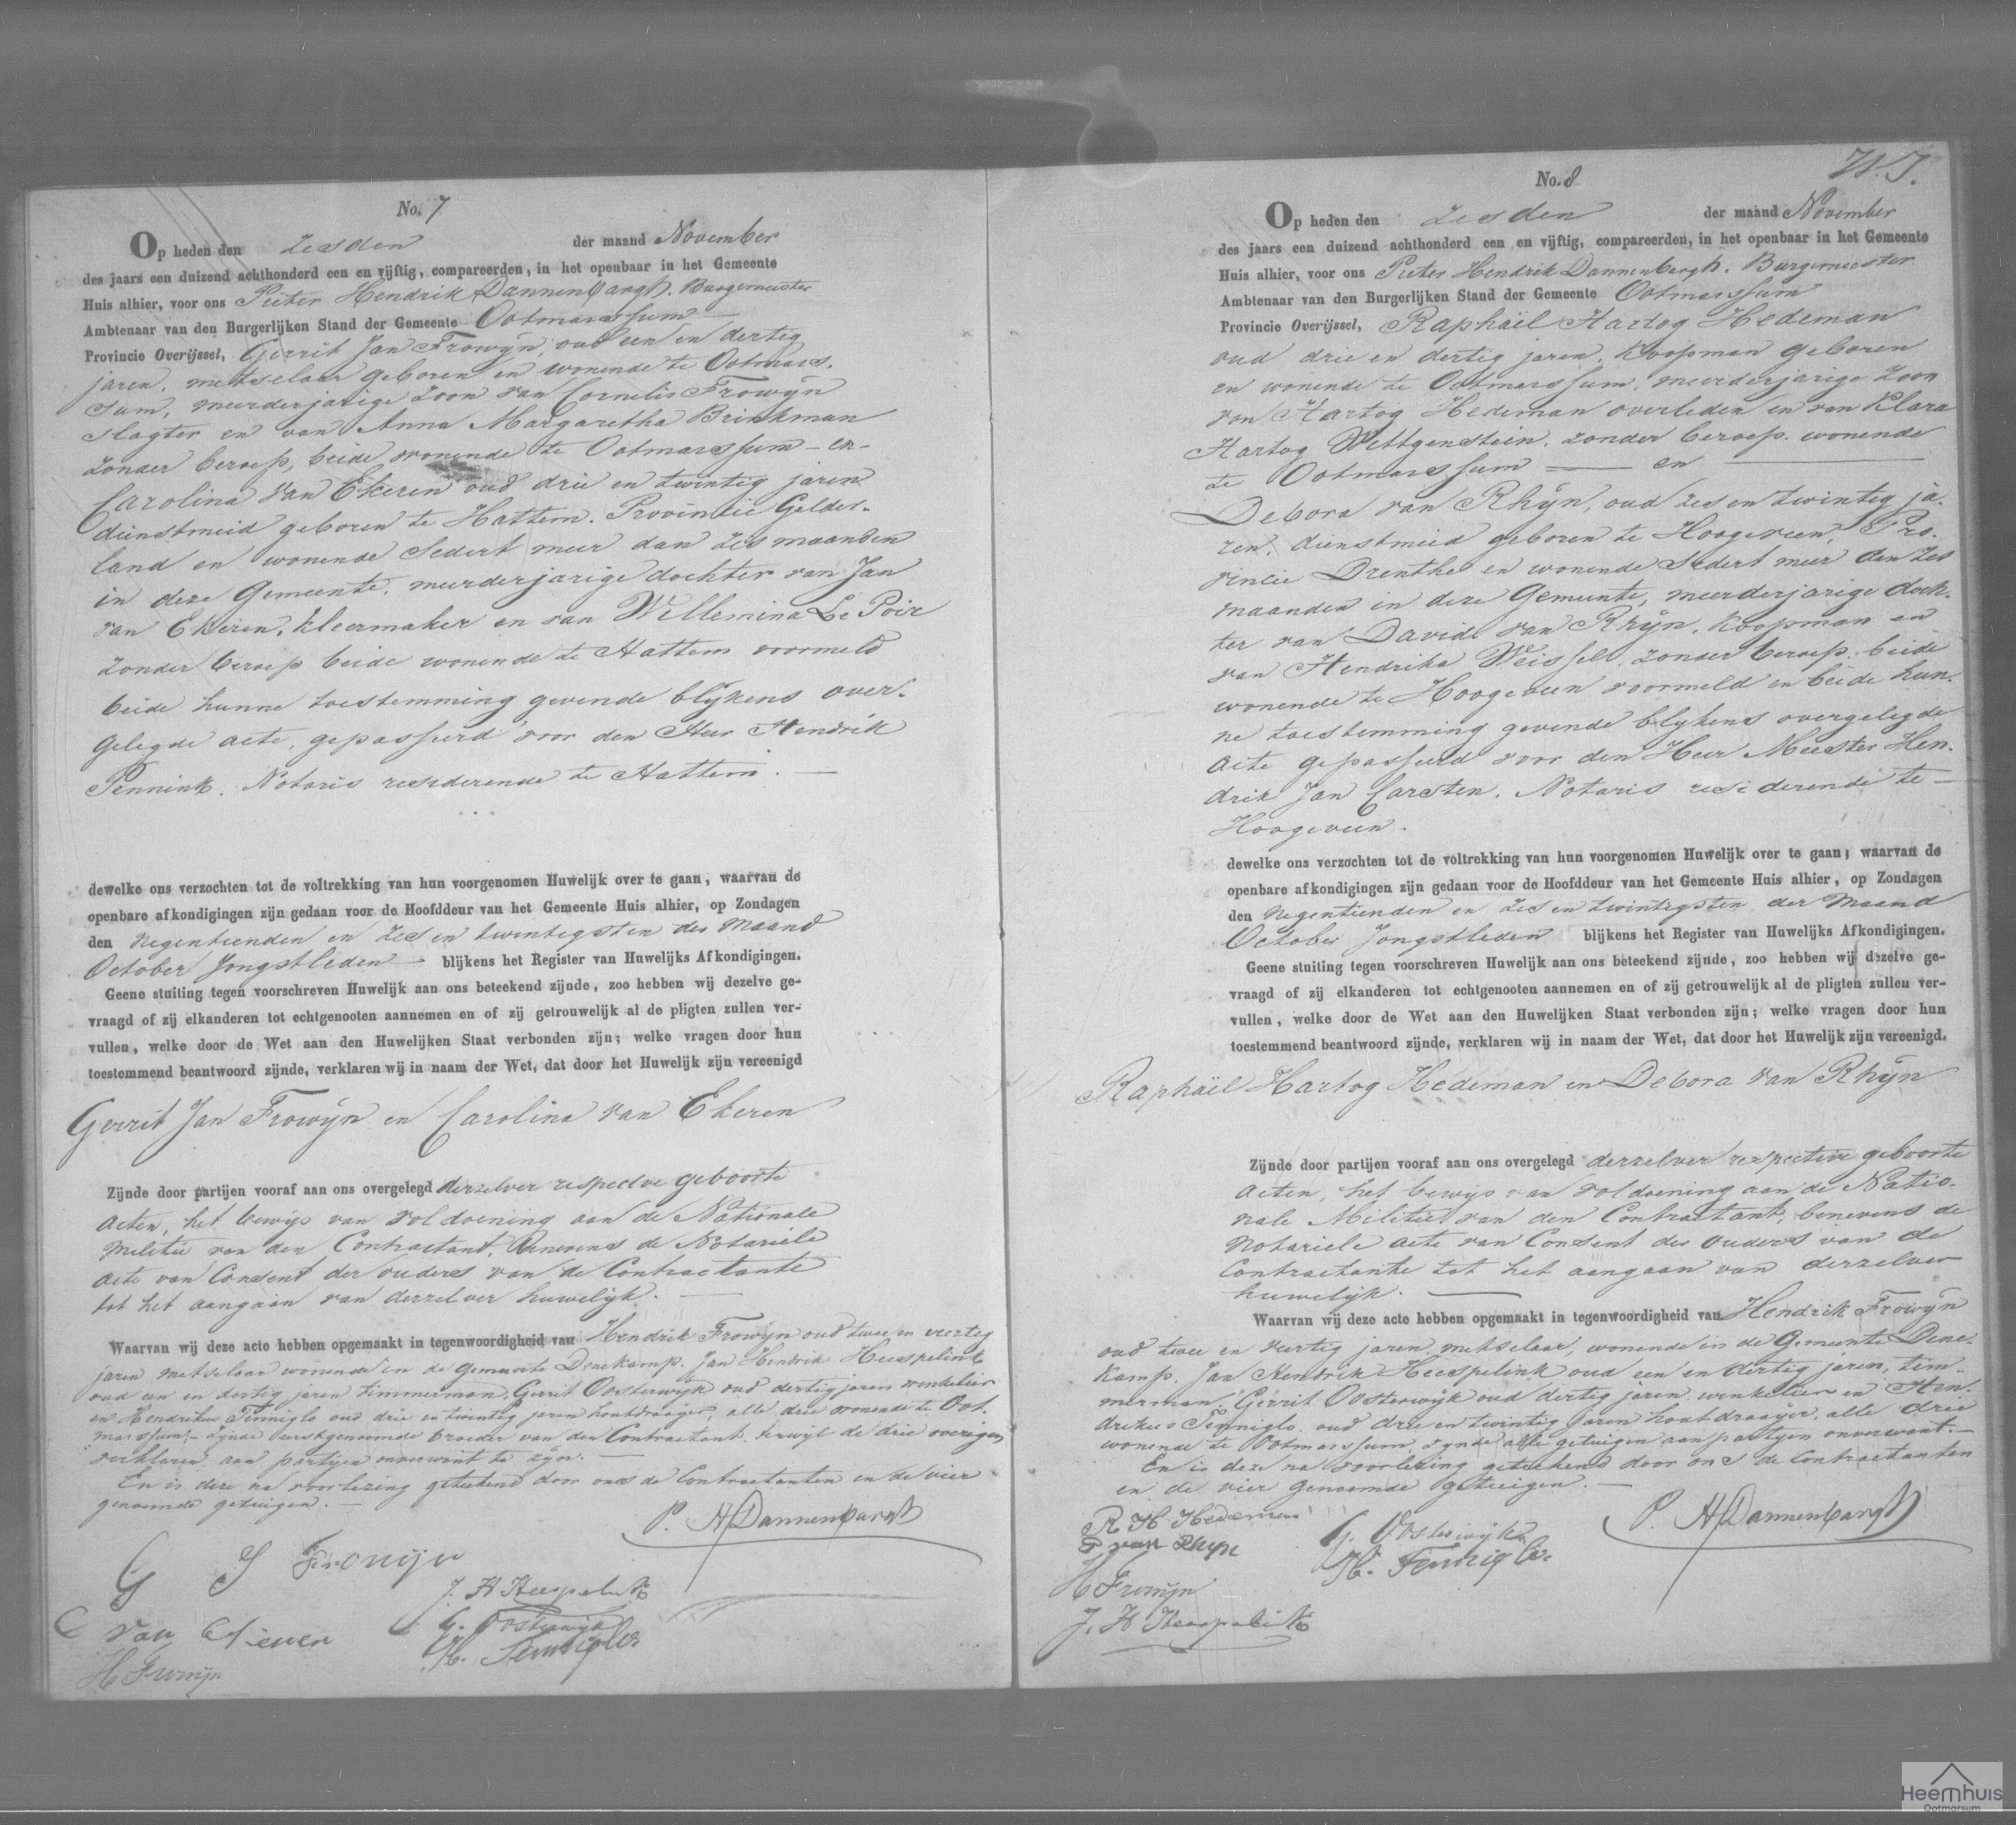 No. 7
Op heden den zesden der maand November
des jaars een duizend achthonderd een en vijftig, compareerden, in het openbaar in het Gemeente
Huis alhier, voor ons Pieter Hendrik Dannenbargh, Burgemeester
Ambtenaar van den Burgerlijken Stand der Gemeente Ootmarssum
Provincie Overijssel, Gerrit Jan Frowijn, oud een en dertig
jaren, metselaar geboren en wonende te Ootmars-
sum, meerderjarige zoon van Cornelis Frowijn
slagter en van Anna Margaretha Brinkman
zonder beroep, beide wonende te Ootmarssum – en –
Carolina van Ekeren oud drie en twintig jaren
dienstmeid geboren te Hattem, Provincie Gelder-
land en wonende sedert meer dan zes maanden
in deze Gemeente, meerderjarige dochter van Jan
van Ekeren, kleermaker en van Willemina Le Poir
zonder beroep beide wonende te Hattem voormeld
beide hunne toestemming gevende blijkens over-
gelegde acte, gepasseerd voor den Heer Hendrik
Pennink, Notaris residerende te Hattem. –
dewelke ons verzochten tot de voltrekking van hun voorgenomen Huwelijk over te gaan, waarvan de
openbare afkondigingen zijn gedaan voor de Hoofddeur van het Gemeente Huis alhier, op Zondagen
den negentienden en zes en twintigsten der maand
October jongstleden – blijkens het Register van Huwelijks Afkondigingen.
Geene stuiting tegen voorschreven Huwelijk aan ons beteekend zijnde, zoo hebben wij dezelve ge-
vraagd of zij elkanderen tot echtgenooten aannemen en of zij getrouwelijk al de pligten zullen ver-
vullen, welke door de Wet aan den Huwelijken Staat verbonden zijn; welke vragen door hun
toestemmend beantwoord zijnde, verklaren wij in naam der Wet, dat door het Huwelijk zijn vereenigd
Gerrit Jan Frowijn en Carolina van Ekeren
Zijnde door partijen vooraf aan ons overgelegd derzelver respective geboorte
acten, het bewijs van voldoening aan de Nationale
Militie van den Contractant, benevens de Notariële
acte van Consent der ouders van de Contractante
tot het aangaan van derzelver huwelijk. –
Waarvan wij deze acte hebben opgemaakt in tegenwoordigheid van Hendrik Frowijn oud twee en veertig
jaren metselaar wonende in de Gemeente Denekamp, Jan Hendrik Heespelink
oud een en dertig jaren timmerman, Gerrit Oosterwijk oud dertig jaren winkelier
en Hendrikus Tenniglo oud drie en twintig jaren houtdraaijer, alle drie wonende te Oot-
marssum, – zijnde eerstgenoemde broeder van den Contractant, terwijl de drie overigen
verklaren aan partijen onverwant te zijn. –
En is deze na voorlezing geteekend door ons de Contractanten en de vier
genoemde getuigen. –
P. H Dannenbargh
G J Frowijn
J. H Heespelink
C van Ekeren
G. Oosterwijk
H. Tenniglo
H Frowijn
No. 8
W. J.
Op heden den zesden der maand November
des jaars een duizend achthonderd een en vijftig, compareerden, in het openbaar in het Gemeente
Huis alhier, voor ons Pieter Hendrik Dannenbargh, Burgemeester
Ambtenaar van den Burgerlijken Stand der Gemeente Ootmarssum
Provincie Overijssel, Raphäel Hartog Hedeman
oud drie en dertig jaren, koopman geboren
en wonende te Ootmarssum, meerderjarige zoon
van Hartog Hedeman overleden en van Klara
Hartog Wettgenstein, zonder beroep, wonende
te Ootmarssum — en —
Debora van Rhijn, oud zes en twintig ja-
ren, dienstmeid geboren te Hoogeveen, Pro-
vincie Drenthe en wonende sedert meer dan zes
maanden in deze Gemeente, meerderjarige doch-
ter van David van Rhijn, koopman en
van Hendrika Weissell, zonder beroep, beide
wonende te Hoogeveen voormeld en beide hun-
ne toestemming gevende blijkens overgelegde
acte gepasseerd voor den Heer Meester Hen-
drik Jan Carsten, Notaris residerende te –
Hoogeveen.
dewelke ons verzochten tot de voltrekking van hun voorgenomen Huwelijk over te gaan; waarvan de
openbare afkondigingen zijn gedaan voor de Hoofddeur van het Gemeente Huis alhier, op Zondagen
den negentienden en zes en twintigsten der maand
October jongstleden blijkens het Register van Huwelijks Afkondigingen.
Geene stuiting tegen voorschreven Huwelijk aan ons beteekend zijnde, zoo hebben wij dezelve ge-
vraagd of zij elkanderen tot echtgenooten aannemen en of zij getrouwelijk al de pligten zullen ver-
vullen, welke door de Wet aan den Huwelijken Staat verbonden zijn; welke vragen door hun
toestemmend beantwoord zijnde, verklaren wij in naam der Wet, dat door het Huwelijk zijn vereenigd.
Raphäel Hartog Hedeman en Debora van Rhijn
Zijnde door partijen vooraf aan ons overgelegd derzelver respective geboorte
acten, het bewijs van voldoening aan de Natio-
nale Militie van den Contractant, benevens de
Notariele acte van Consent der ouders van de
Contractante tot het aangaan van derzelver
huwelijk. —
Waarvan wij deze acte hebben opgemaakt in tegenwoordigheid van Hendrik Frowijn
oud twee en veertig jaren metselaar, wonende in de Gemeente Dene-
kamp, Jan Hendrik Heespelink oud een en dertig jaren, tim-
merman, Gerrit Oosterwijk oud dertig jaren winkelier en Hen-
drikus Tenniglo, oud drie en twintig jaren houtdraaijer, alle drie
wonende te Ootmarssum, zijnde alle getuigen aan partijen onverwant. –
En is deze na voorlezing geteekend door ons de Contractanten
en de vier genoemde getuigen. –
P. H Dannenbargh
R. H Hedeman
G. Oosterwijk
D van Rhijn
H. Tenniglo
H Frowijn
J. H Heespelink
Heemhuis
Ootmarsum